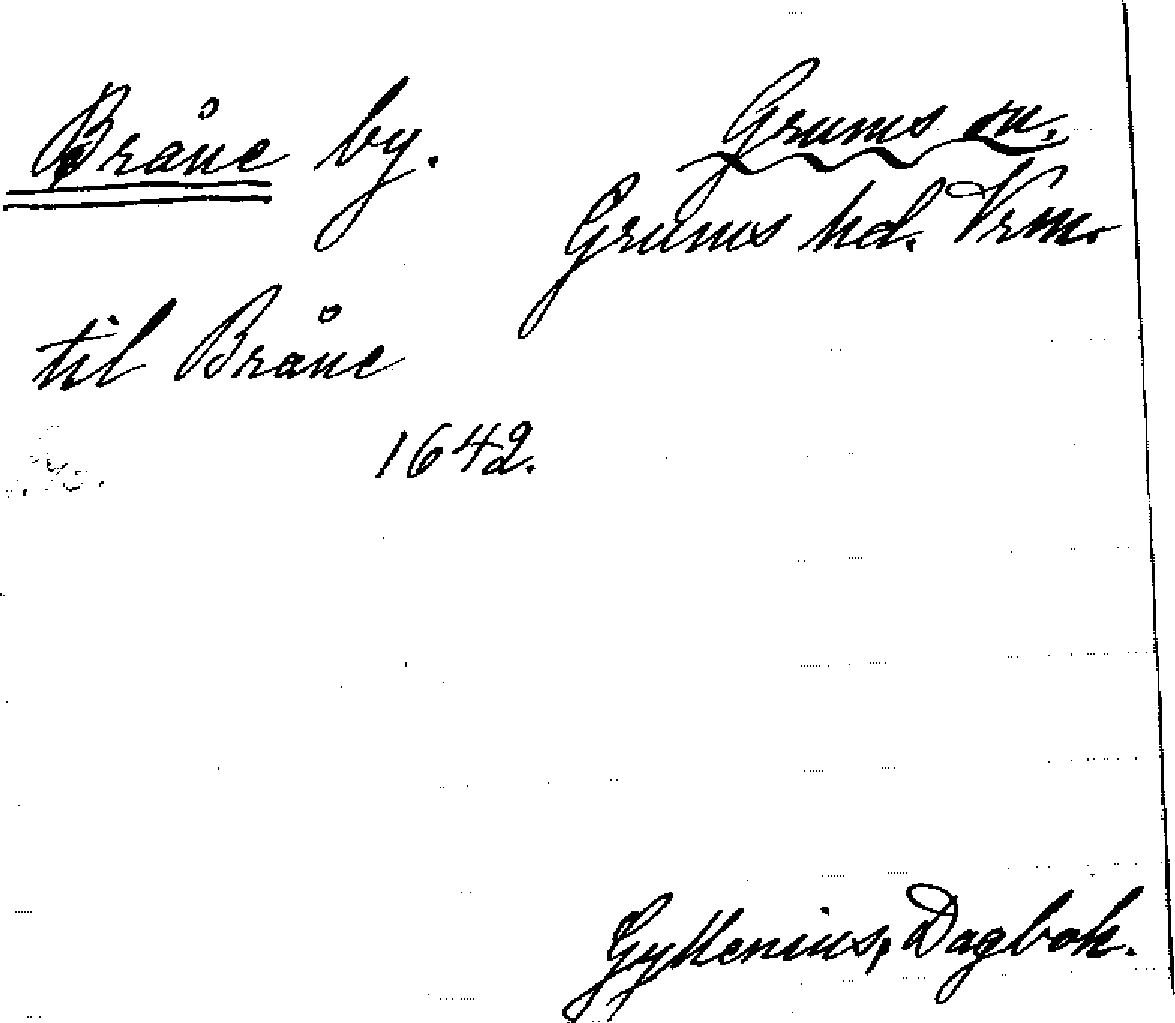 Bråne by.
Grums sn.
Grums hd. Vrm.
til Bråne
1642.
Gyllenius, Dagbok.